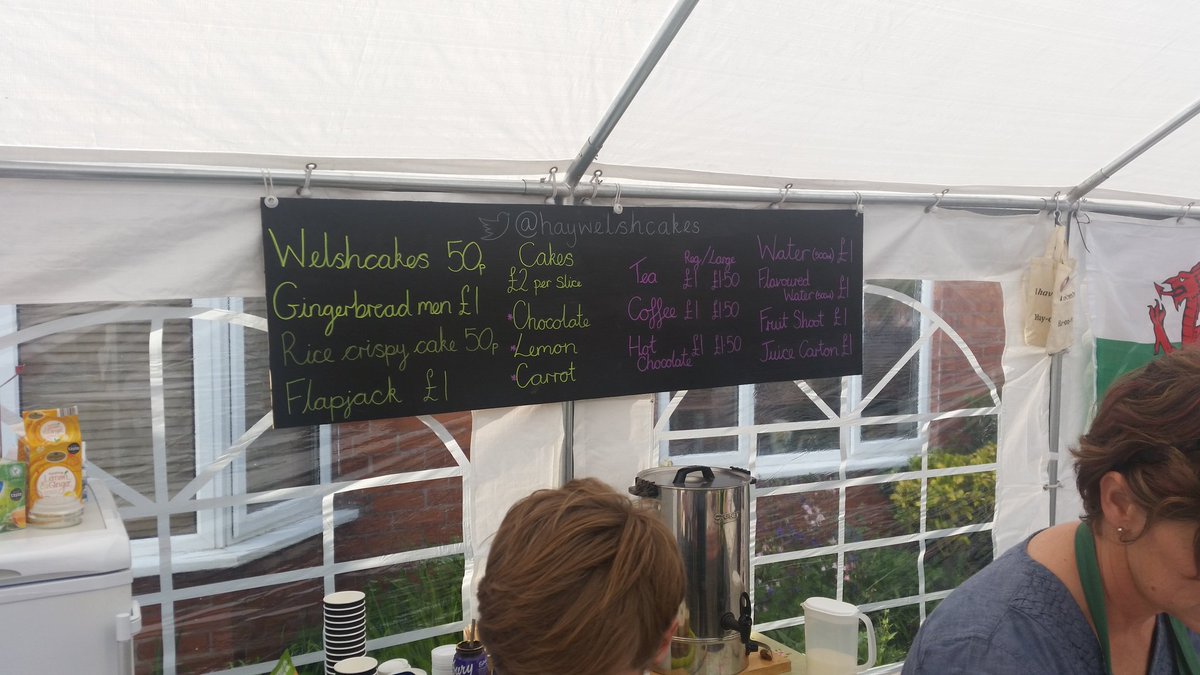 @haywelshcakes
Welshcakes 50p
Gingerbread men £1
Rice crispy cake 50p
Flapjack £1
Cakes
£2 per slice
*Chocolate
*Lemon
*Carrot
Reg/Large
Tea £1 £1·50
Coffee £1 £1·50
Hot
Chocolate £1 £1·50
Water (500ml) £1
Flavoured
Water (500ml) £1
Fruit Shoot £1
Juice Carton £1
Lemon
Ginger